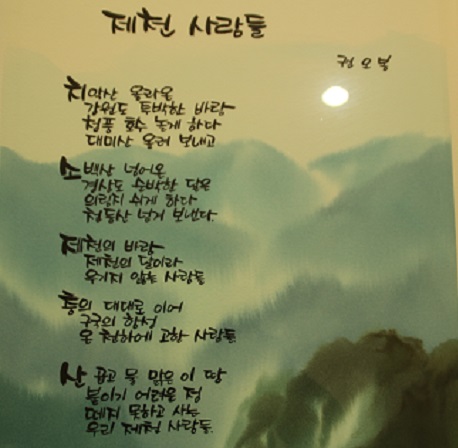 제천 사람들
권오복
치악산 올라온
강원도 투박한 바람
청풍 호수 놀게 하다
대미산 올려 보내고
소백산 넘어온
경상도 순박한 달은
의림지 쉬게 하다
천등산 넘겨 보낸다.
제천의 바람
제천의 달이라
우기지 않는 사람들
충의 대대로 이어
구국의 함성
온 천하에 고한 사람들
산 곱고 물 맑은 이 땅
붙이기 어려운 정
떼지 못하고 사는
우리 제천 사람들.